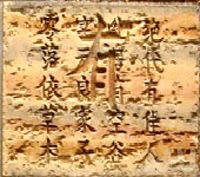 絕代有佳人
幽居在空谷
自云良家子
零落依草木